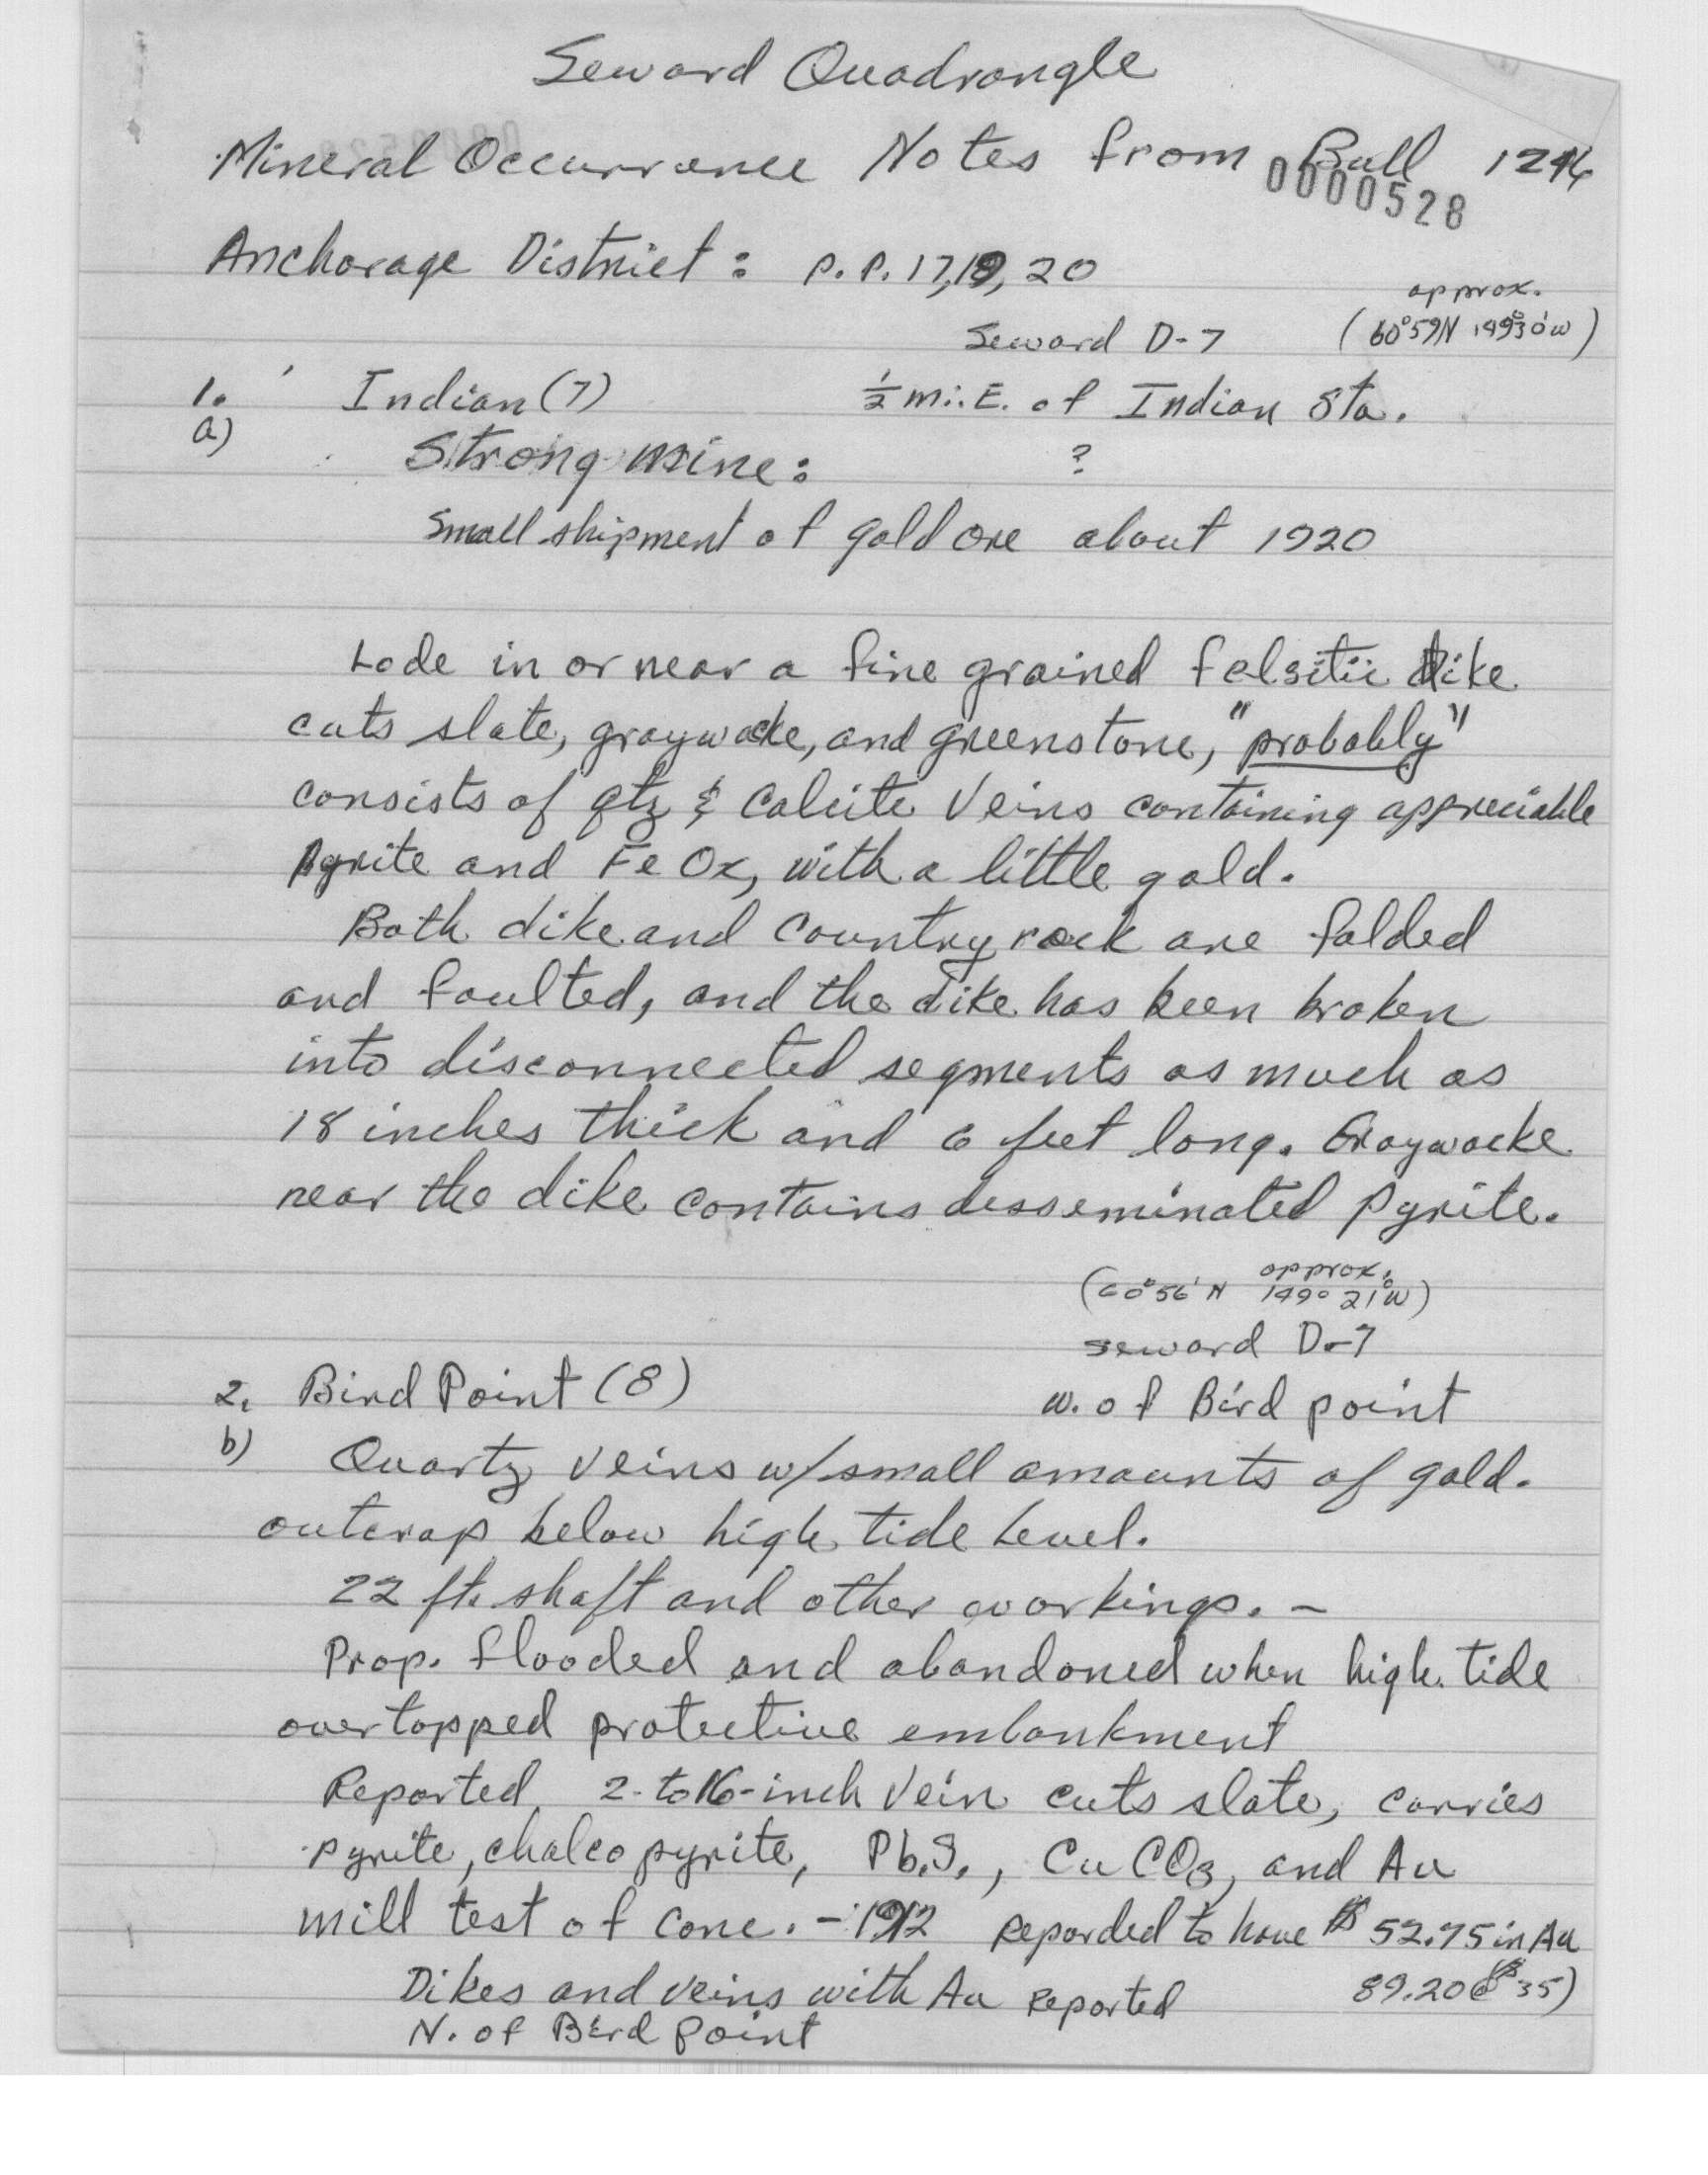 Seward Quadrangle
Mineral Occurrance Notes from Bull 1246
0000528
Anchorage District: P.P. 17,19,20
approx.
Seward D-7 (60°59N 149°30'W)
1. Indian (7) ½ mi. E. of Indian Sta.
a) Strong mine: ?
Small shipment of gold ore about 1920
Lode in or near a fine grained felsitic dike
cuts slate, graywacke, and greenstone, "probably"
consists of qtz & Calcite Veins containing appreciable
pyrite and Fe Ox, with a little gold.
Both dike and Country rock are folded
and faulted, and the dike has been broken
into disconnected segments as much as
18 inches thick and 6 feet long. Graywacke
near the dike contains desseminated pyrite.
approx.
(60°56'N 149° 21'W)
Seward D-7
2. Bird Point (8) W. of Bird point
b) Quartz Veins w/small amounts of gold.
outcrop below high tide Level.
22 ft. shaft and other workings. -
Prop. flooded and abandoned when high tide
overtopped protective embankment
Reported 2-to16-inch Vein cuts slate, carries
pyrite, chalcopyrite, Pb.S., CuCO3, and Au
mill test of conc. - 1912 Reporded to have $52.75 in Au
Dikes and veins with Au Reported 89.20@$35)
N. of Bird Point